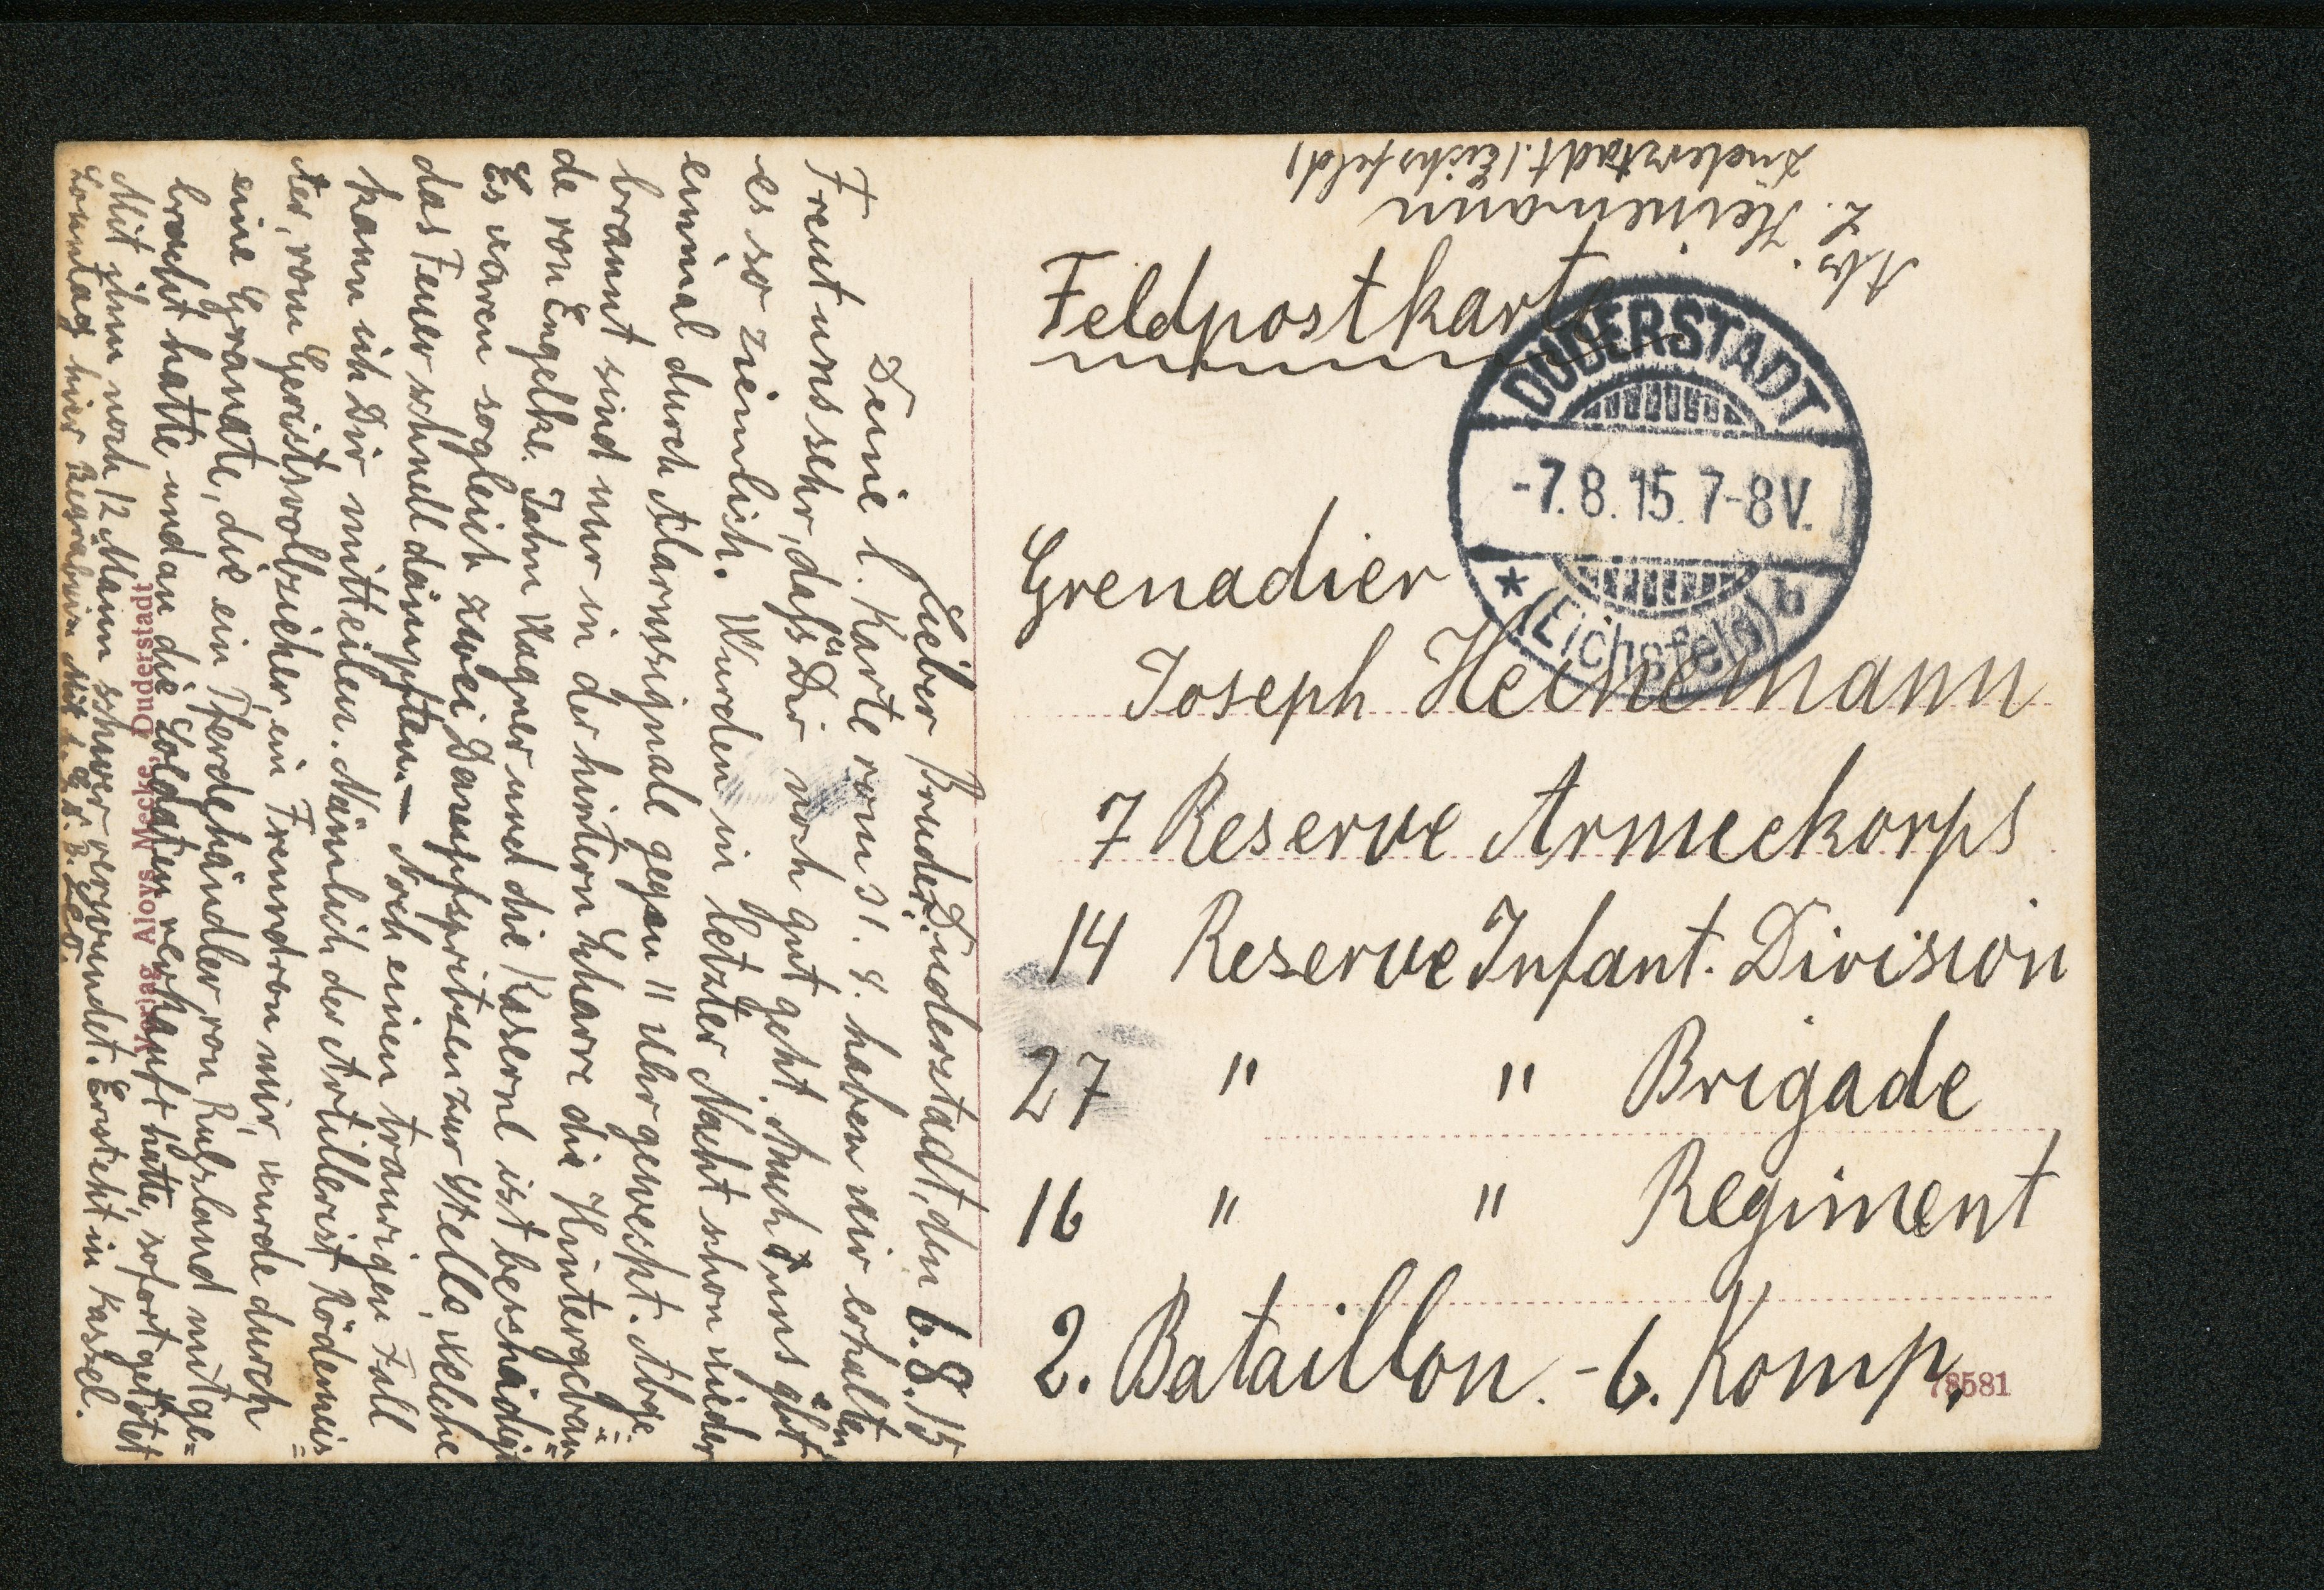 Abs.
L. Heinemann
Duderstadt (Eichsfeld)
Feldpostkarte
DUDERSTADT
-7.8.15. 7-8V.
* (Eichsfeld) b
Grenadier
Joseph Heinemann
7 Reserve Armeekorps
14 Reserve Infant. Division
27 " " Brigade
16 " " Regiment
2. Bataillon. - 6. Komp.
78581
Duderstadt, den 6.8.15
Lieber Bruder!
Deine l. Karte vom 31. 8. haben wir erhalten
Freut uns sehr, daß es Dir noch gut geht. Auch uns geht
es so ziemlich. Wurden in letzter Nacht schon wieder
einmal durch Alarmsignale gegen 11 Uhr geweckt. Abge-
brannt sind nur in der hintern Scharre die Hintergebäu=
de von Engelke. Jahn Wagner und die Kaserne ist beschädigt
Es waren sogleich zwei Dampfspritzen zur Stelle, welche
das Feuer schnell dämpften. — Noch einen traurigen Fall
kann ich Dir mitteilen. Nämlich der Artillerist Rödemeis=
ter, vom Gerichtsvollzieher, ein Freund von mir, wurde durch
eine Granate, die ein Pferdehändler von Rußland mitge=
bracht hatte und an die Soldaten verkauft hatte, sofort getötet
Mit ihm noch 12 Mann schwer verwundet. Er steht in Kassel.
Sonntag hier Begräbnis Mit h. Gr. Leo.
Verlag Aloys Mecke, Duderstadt